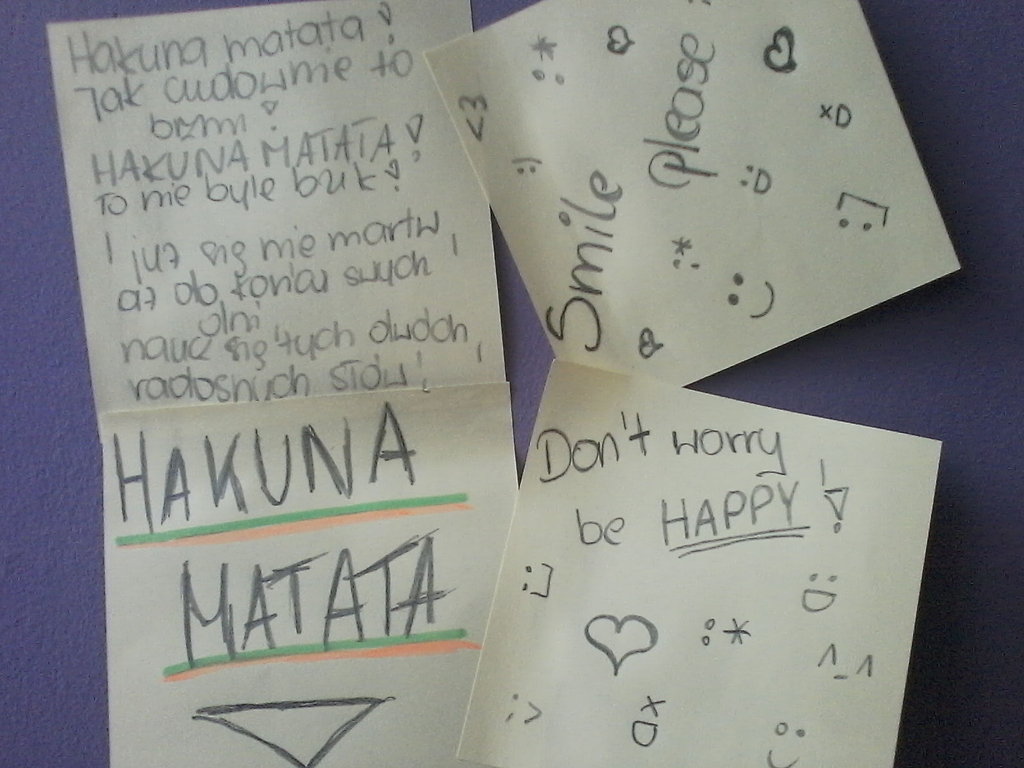 Hakuna matata!
Jak cudownie to
brzmi!
HAKUNA MATATA!
To nie byle bzik!
I już się nie martw,
aż do końca swych
dni,
naucz się tych dwóch
radosnych słów!
HAKUNA
MATATA
Smile
please!
<3
:*
:)
xD
:D
:]
:*
:)
Don't worry
be HAPPY!
:]
:D
:*
^_^
:>
xD
:)